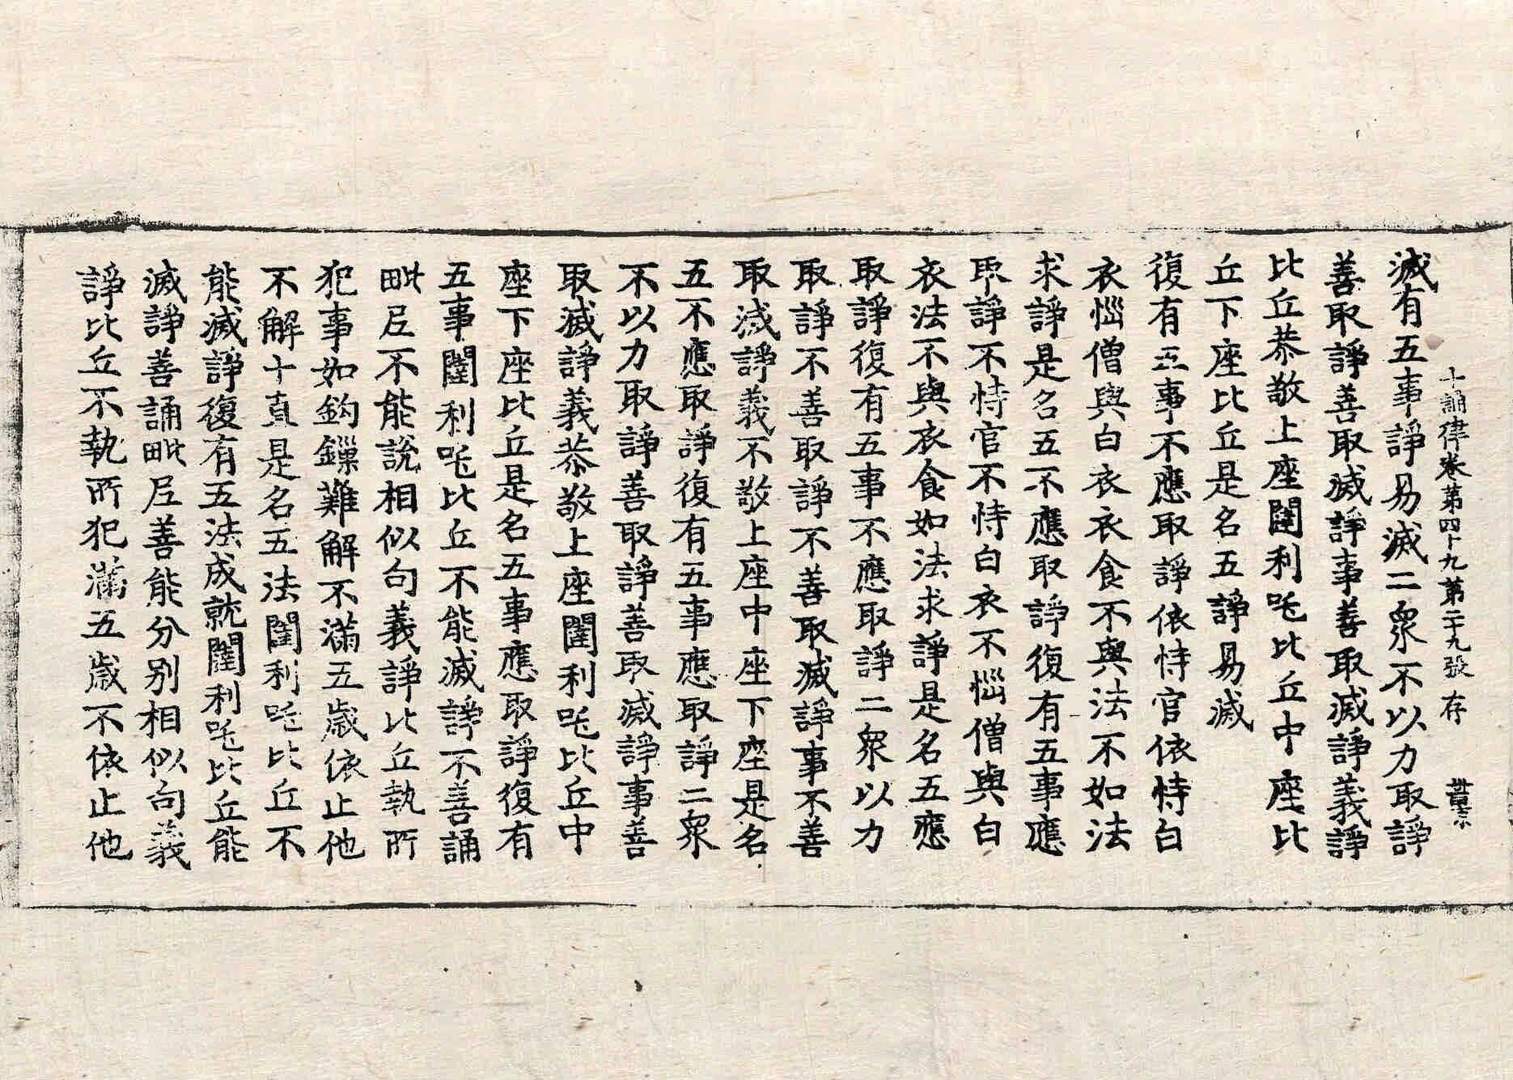 十誦律卷第四十九第二十九張 存
滅有五事諍易滅二衆不以力取諍
善取諍善取滅諍事善取滅諍義諍
比丘恭敬上座闥利吒比丘中座比
丘下座比丘是名五諍易滅
復有五事不應取諍依恃官依恃白
衣惱僧與白衣衣食不與法不如法
求諍是名五不應取諍復有五事應
取諍不恃官不恃白衣不惱僧與白
衣法不與衣食如法求諍是名五應
取諍復有五事不應取諍二衆以力
取諍不善取諍不善取滅諍事不善
取滅諍義不敬上座中座下座是名
五不應取諍復有五事應取諍二衆
不以力取諍善取諍善取滅諍事善
取滅諍義恭敬上座闥利吒比丘中
座下座比丘是名五事應取諍復有
五事闥利吒比丘不能滅諍不善誦
毗尼不能說相似句義諍比丘執所
犯事如鈎鏁難解不滿五歲依止他
不解十直是名五法闥利吒比丘不
能滅諍復有五法成就闥利吒比丘能
滅諍善誦毗尼善能分別相似句義
諍比丘不執所犯滿五歲不依止他